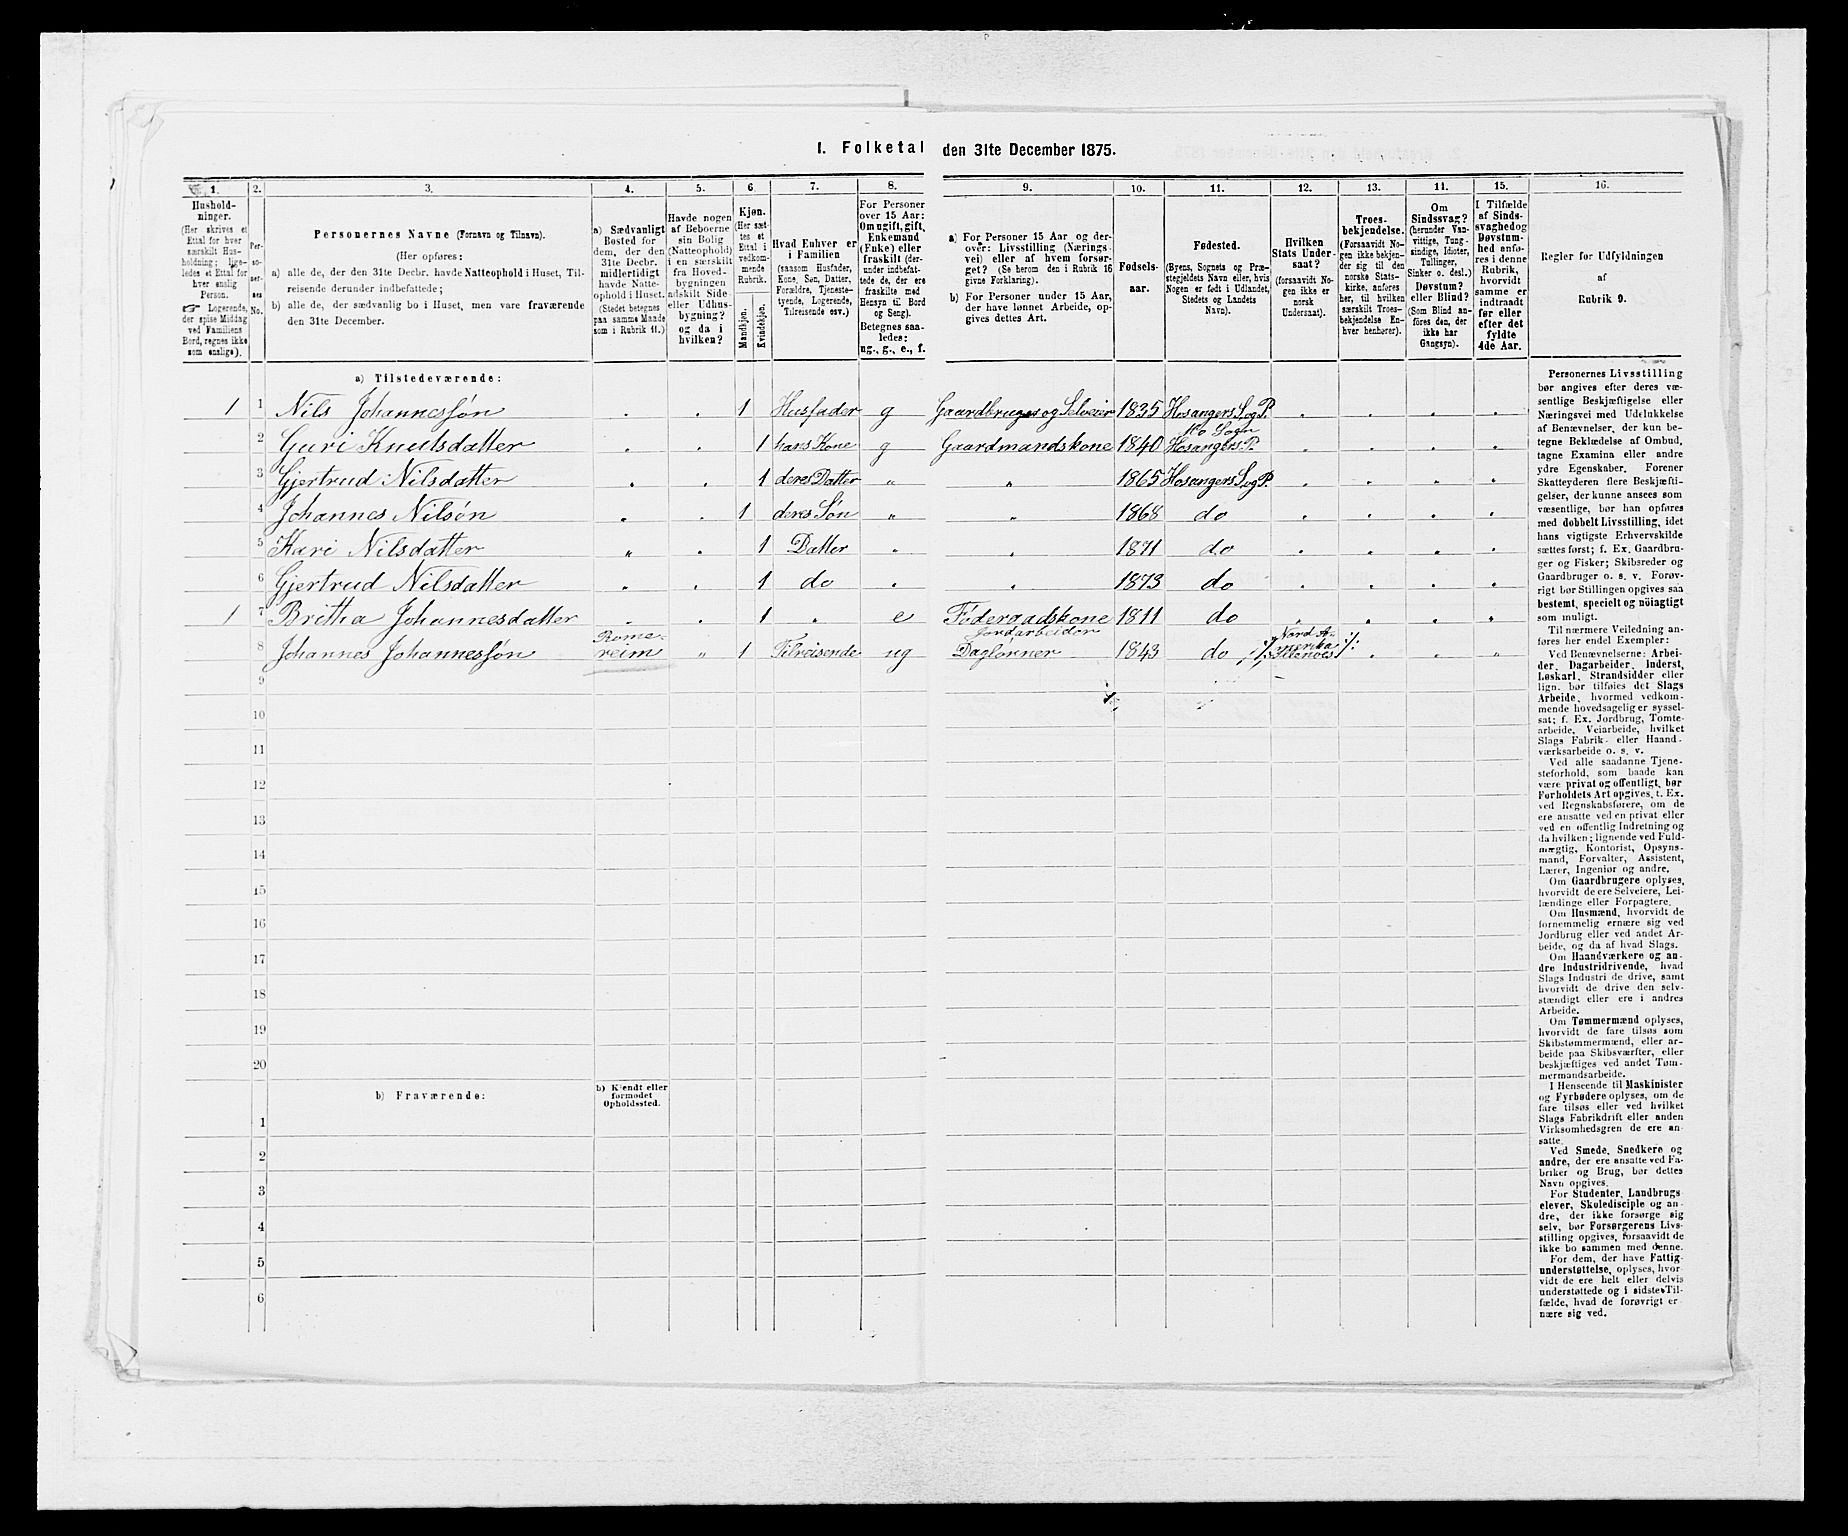 1. Folketal den 31te December 1875.
1. 2. 3. 4. 5. 6. 7. 8. 9. 10. 11. 12. 13. 14. 15. 16.
Hushold-
ninger.
(Her skrives et
Ettal for hver
særskilt Hus-
holdning; lige-
ledes et Ettal for
hver enslig
Person.
☞ Logerende,
der spise Middag
ved Familiens
Bord, regnes ikke
som enslige).
Per-
so-
ner-
nes
No.
Personernes Navne (Fornavn og Tilnavn).
(Her opføres:
a) alle de, der den 31te Decbr. havde Natteophold i Huset, Til-
reisende derunder indbefattede;
b) alle de, der sædvanlig bo i Huset, men vare fraværende
den 31te December.
a) Sædvanligt
Bosted for
dem, der den
31te Decbr.
midlertidigt
havde Natte-
ophold i Huset.
(Stedet betegnes
paa samme Maade
som i Rubrik 11.)
Havde nogen
af Beboerne
sin Bolig
(Natteophold)
i en særskilt
fra Hoved-
bygningen
adskilt Side-
eller Udhus-
bygning?
og da i
hvilken?
Kjøn.
(Her sæt-
tes et
Ettal i
vedkom-
mende
Rubrik.
Mandkjøn.
Kvindekjøn.
Hvad Enhver er
i Familien
(saasom Husfader,
Kone, Søn, Datter,
Forældre, Tjeneste-
tyende, Logerende,
Tilreisende osv.)
For Personer
over 15 Aar:
Om ugift, gift,
Enkemand
(Enke) eller
fraskilt (der-
under indbefat-
tede de, der ere
fraskilte med
Hensyn til Bord
og Seng).
Betegnes saa-
ledes:
ug., g., e., f.
a) For Personer 15 Aar og der-
over: Livsstilling (Nærings-
vei) eller af hvem forsør-
get? (Se herom den i Rubrik 16
givne Forklaring).
b) For Personer under 15 Aar,
der have lønnet Arbeide, op-
gives dettes Art.
Fødsels-
aar.
Fødested.
(Byens, Sognets og Præ-
stegjeldets Navn eller, hvis
Nogen er født i Udlandet,
Stedets og Landets
Navn).
Hvilken
Stats Under-
saat?
(forsaavidt No-
gen ikke er
norsk
Undersaat).
Troes-
bekjendelse.
(Forsaavidt No-
gen ikke bekjen-
der sig til den
norske Stats-
kirke, anføres
her, til hvilken
særskilt Troes-
bekjendelse En-
hver henhører).
Om
Sindssvag?
(herunder Van-
vittige, Tung-
sindige, Idioter,
Tullinger,
Sinker o. desl.)
Døvstum?
eller Blind?
(Som Blind an-
føres den, der
ikke har
Gangsyn).
I Tilfælde
af Sinds-
svaghed og
Døvstum-
hed anfø-
res i denne
Rubrik,
hvorvidt
samme er
indtraadt
før eller
efter det
fyldte
4de Aar.
Regler for Udfyldningen
af
Rubrik 9.
a) Tilstedeværende:
1 1 Nils Johannessøn . . 1 Husfader g Gaardbruger og Selveier 1835 Hosangers S. og P. . . . .
2 Guri Knutsdatter . . 1 hans Kone g Gaardmandskone 1840 Mo Sogn Hosangers P. . . . .
3 Gjertrud Nilsdatter . . 1 deres Datter " " 1865 Hosangers S. og P. . . . .
4 Johannes Nilsøn . . 1 deres Søn " " 1868 do . . . .
5 Kari Nilsdatter " . 1 Datter " . 1871 do . . . .
6 Gjertrud Nilsdatter . . 1 do . " 1873 do . . . .
1 7 Britha Johannesdatter . . 1 . e Føderaadskone 1811 do . . . .
8 Johannes Johannessøn Rome-
reim " 1 Tilreisende ug Jordarbeider
Daglønner 1843 do Nord A-
merika
Illenoes . . "
9
10
11
12
13
14
15
16
17
18
19
20
b) Fraværende:
b) Kjendt eller
formodet
Opholdssted.
1
2
3
4
5
6
Personernes Livsstilling
bør angives efter deres væ-
sentlige Beskjæftigelse eller
Næringsvei med Udelukkelse
af Benævnelser, der kun be-
tegne Beklædelse af Ombud,
tagne Examina eller andre
ydre Egenskaber. Forener
Skatteyderen flere Beskjæfti-
gelser, der kunne ansees som
væsentlige, bør han opføres
med dobbelt Livsstilling, idet
hans vigtigste Erhvervskilde
sættes først; f. Ex. Gaardbru-
ger og Fisker; Skibsreder og
Gaardbruger o. s. v. Forøv-
rigt bør Stillingen opgives saa
bestemt, specielt og nöiagtigt
som muligt.
Til nærmere Veiledning an-
føres her endel Exempler:
Ved Benævnelserne: Arbei-
der, Dagarbeider, Inderst,
Løskarl, Strandsidder eller
lign. bør tilføies det Slags
Arbeide, hvormed vedkom-
mende hovedsagelig er syssel-
sat; f. Ex. Jordbrug, Tomte-
arbeide, Veiarbeide, hvilket
Slags Fabrik- eller Haand-
værksarbeide o. s. v.
Ved alle saadanne Tjene-
steforhold, som baade kan
være privat og offentligt, bør
Forholdets Art opgives, t. Ex.
ved Regnskabsførere, om de
ere ansatte ved en privat eller
ved en offentlig Indretning og
da hvilken; lignende ved Fuld-
mægtig, Kontorist, Opsyns-
mand, Forvalter, Assistent,
Lærer, Ingeniør og andre.
Om Gaardbrugere oplyses,
hvorvidt de ere Selveiere, Lei-
lændinge eller Forpagtere.
Om Husmænd, hvorvidt de
fornemmelig ernære sig ved
Jordbrug eller ved andet Ar-
beide, og da af hvad Slags.
Om Haandværkere og an-
dre Industridrivende, hvad
Slags Industri de drive, samt
hvorvidt de drive den selv-
stændigt eller ere i andres
Arbeide.
Om Tømmermænd oplyses,
hvorvidt de fare tilsøs som
Skibstømmermænd, eller ar-
beide paa Skibsværfter, eller
beskjæftiges ved andet Tøm-
mermandsarbeide.
I Henseende til Maskinister
og Fyrbødere oplyses, om de
fare tilsøs eller ved hvilket
Slags Fabrikdrift eller anden
Virksomhedsgren de ere an-
satte.
Ved Smede, Snedkere og
andre, der ere ansatte ved Fa-
briker og Brug, bør dettes
Navn opgives.
For Studenter, Landbrugs-
elever, Skoledisciple og an-
dre, der ikke forsørge sig
selv, bør Forsørgerens Livs-
stilling opgives, forsaavidt de
ikke bo sammen med denne.
For dem, der have Fattig-
understøttelse, oplyses, hvor-
vidt de ere helt eller delvis
understøttede og i sidste Til-
fælde, hvad de forøvrigt er-
nære sig ved.